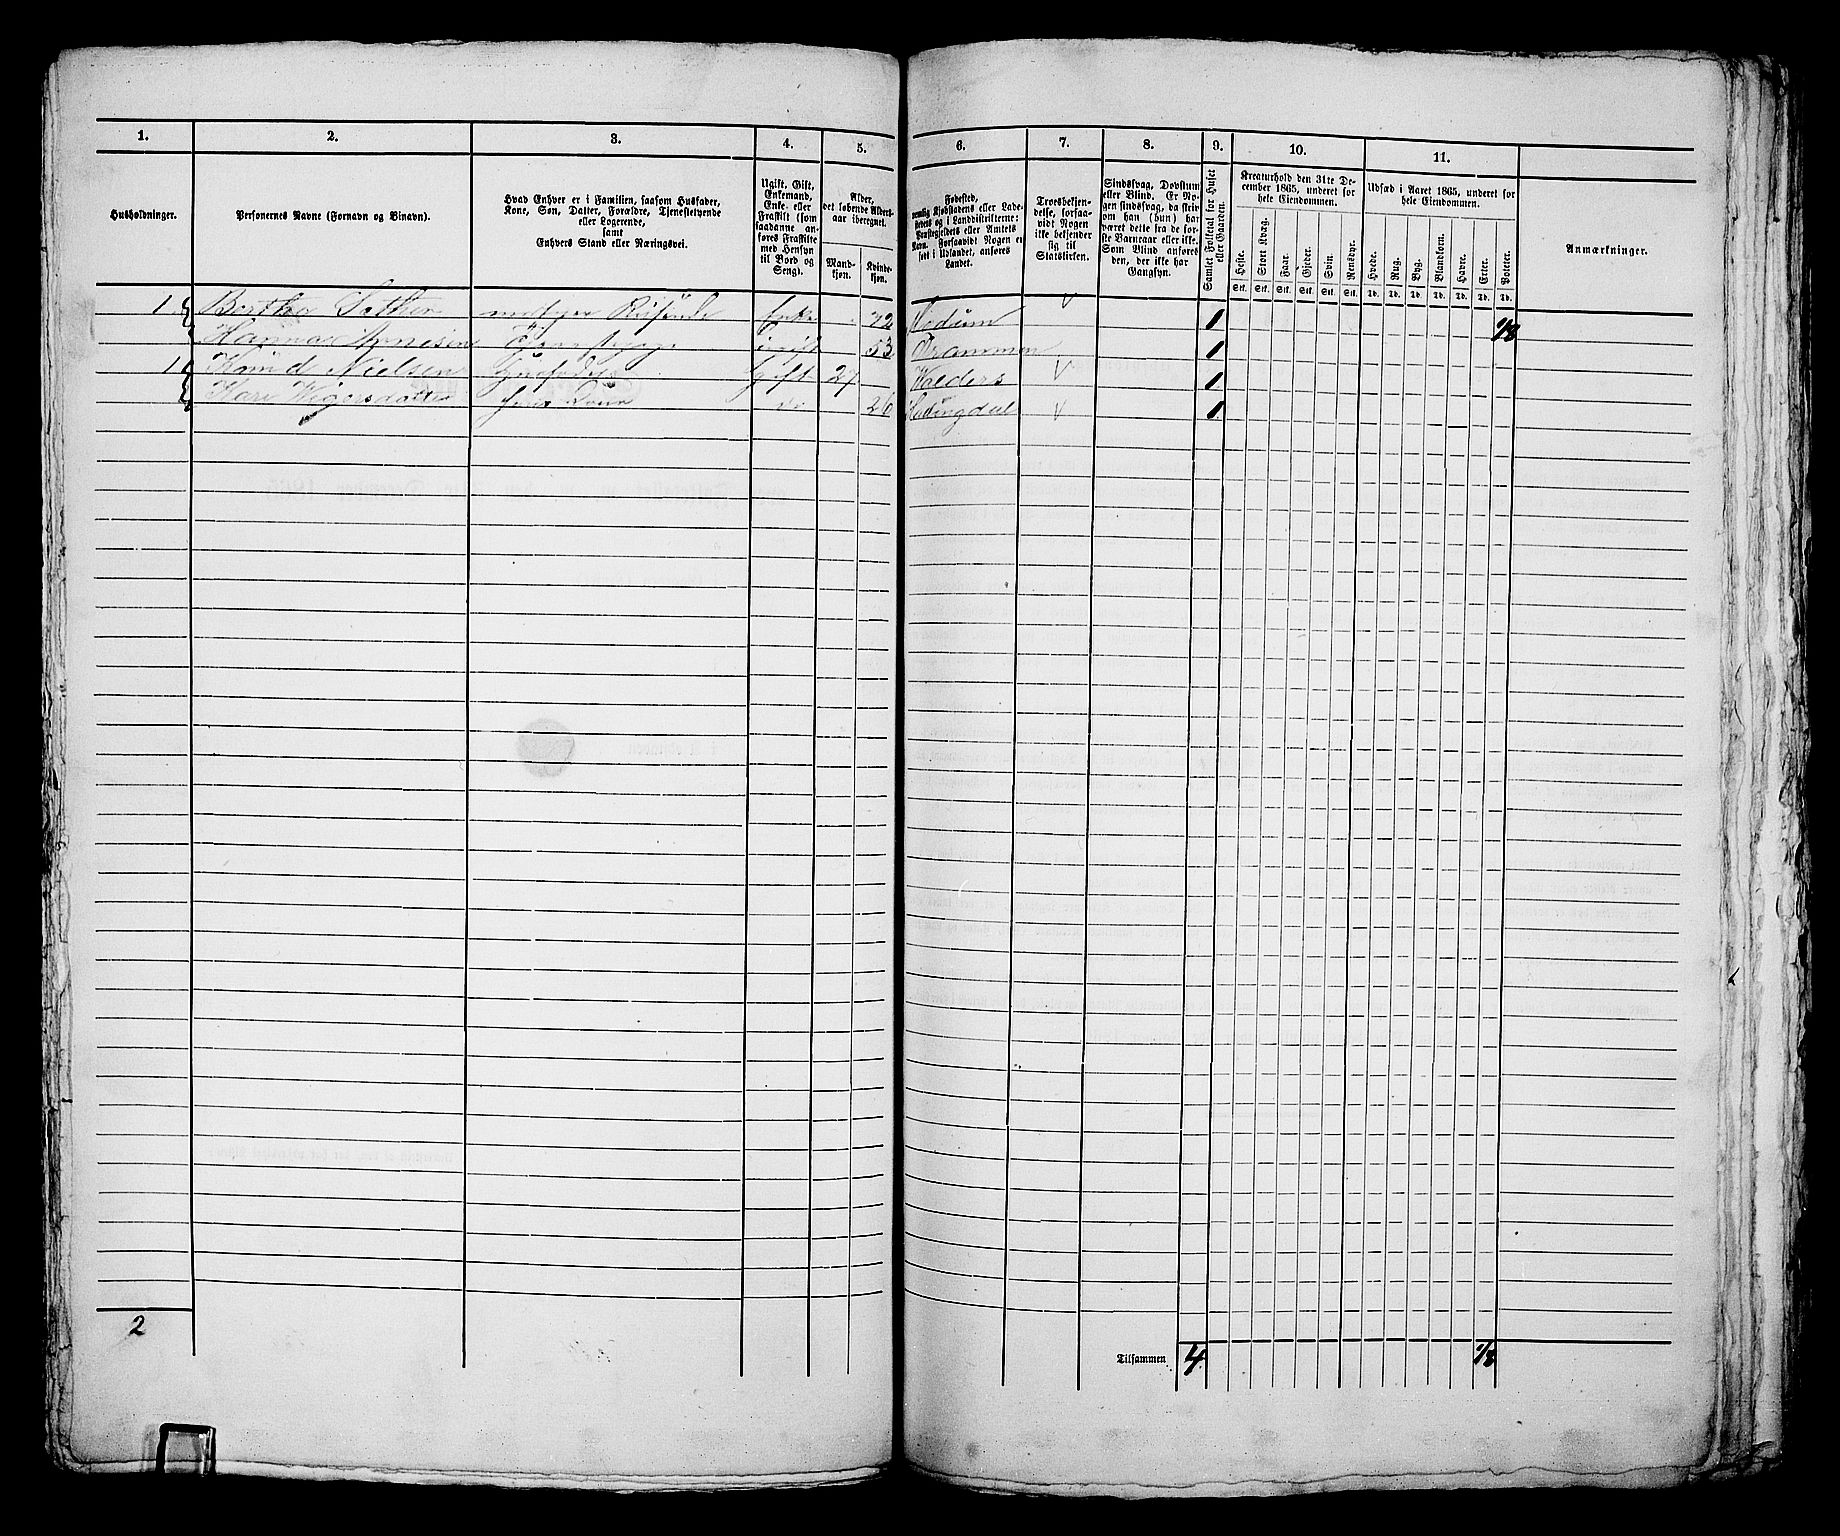 1. 2. 3. 4. 5. 6. 7. 8. 9. 10. 11.
Husholdninger.
Personernes Navne (Fornavn og Binavn).
Hvad Enhver er i Familien, saasom Husfader,
Kone, Søn, Datter, Forældre, Tjenestetyende
eller Logerende,
samt
Enhvers Stand eller Næringsvei.
Ugift, Gift,
Enkemand,
Enke- eller
Fraskilt (som
saadanne an-
føres Fraskilte
med Hensyn
til Bord og
Seng).
Alder,
det løbende Alders-
aar iberegnet.
Mand-
kjøn.
Kvinde-
kjøn.
Fødested,
nemlig Kjøbstadens eller Lade-
stedets og i Landdistrikterne:
Præstegjeldets eller Amtets
Navn. Forsaavidt Nogen er
født i Udlandet, anføres
Landet.
Troesbekjen-
delse, forsaa-
vidt Nogen
ikke bekjender
sig til
Statskirken.
Sindssvag, Døvstum
eller Blind. Er No-
gen sindssvag, da skriv
om han (hun) har
været dette fra de før-
ste Barneaar eller ikke.
Som Blind anføres
den, der ikke har
Gangsyn.
Samlet Folketal for Huset
eller Gaarden.
Kreaturhold den 31te De-
cember 1865, underet for
hele Eiendommen.
Heste. Stort Kvæg. Faar. Gjeder. Svin. Rensdyr.
Stk. Stk. Stk. Stk. Stk. Stk.
Udsæd i Aaret 1865, underet for
hele Eiendommen.
Hvede. Rug. Byg. Blandkorn. Havre. Erter. Poteter.
Td. Td. Td. Td. Td. Td. Td.
Anmærkninger.
1 Bertha Enke 72 Modum 1 1/8
Hanna ugift 53 Drammen 1
1 Knud Nielsen gift 27 Valders 1
Kari hans Kone do 26 Hallingdal 1
2
Tilsammen 4 1/8